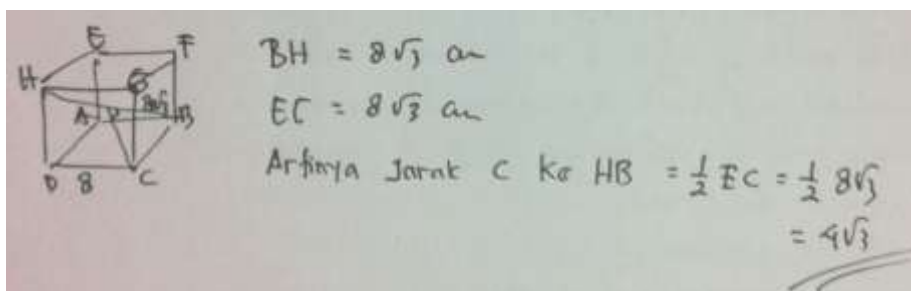 E
F
H
G
8√3
A P B
D 8 C
BH = 8√3 cm
EC = 8√3 cm
Artinya Jarak C ke HB = ½ EC = ½ 8√3
= 4√3